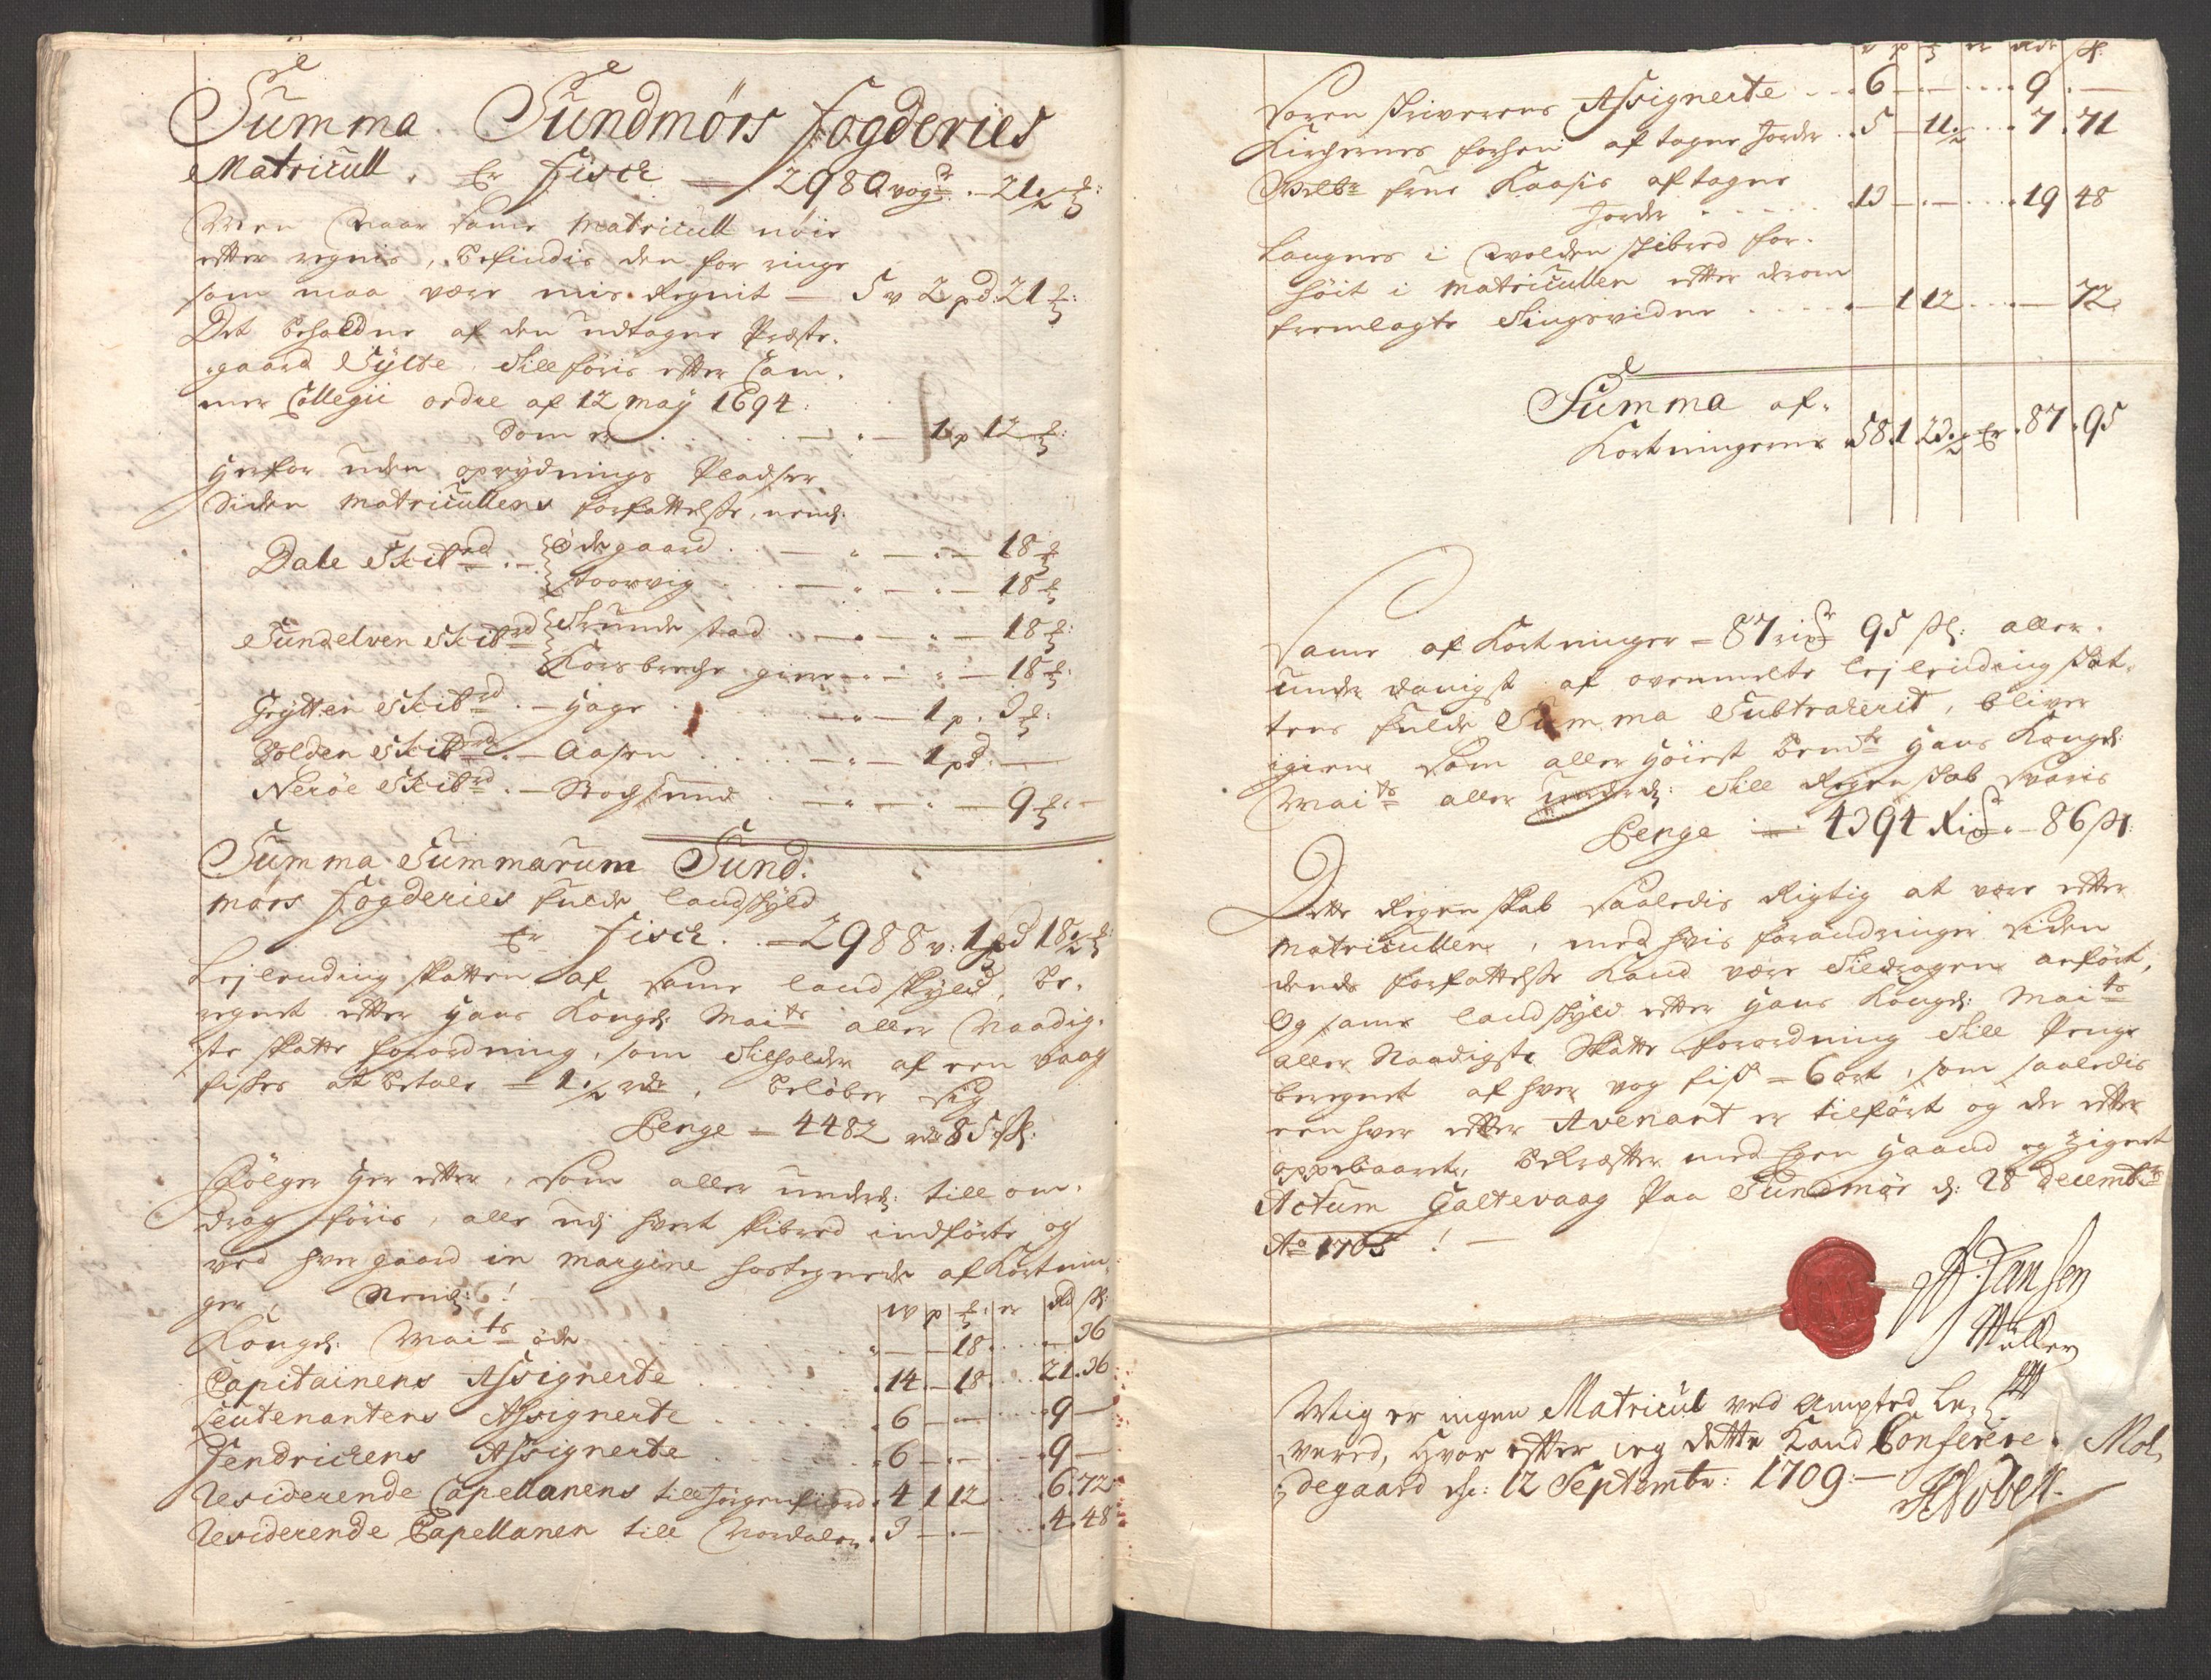 Summa Sundmørs fogderies
Matricull. Er fisch — 2980 vog. — 21½ ℔:
Men Naar same Matricull nöie
efter regnis, befindis den for ringe
som maa være mis Regnit — 5 v 2 pd: 21 ℔:
Det beholdne af den udtagne Præste-
gaard Sylte, Tillföris efter Cam-
mer Collegii ordre af 12 maÿ 1694:
Som er . . . . . — . — 1 p 12 ℔:
Herfor uden oprÿdnings Pladser
Siden Matricullens forfattelsse, nemℓ:
Dale Skibrd. — Ödegaard . . — „ — „ — 18 ℔
Stoorvig . . — „ — „ — 18 ℔
Sundelven Skibrd Skrunde stad . — „ — „ — 18 ℔:
Korsbreche giere — „ — „ — 18 ℔:
Grÿtten Skibrd . — Hage . . . — „ — 1 p. 3 ℔:
Volden Skibrd . — Aasen . . . . — „ — 1 pd: —
Neröe Skibrd . — Rochsund . — „ — „ — 9 ℔: —
Summa Summarum Sund:
mørs fogderies fulde landskÿld
Er fisch. — 2988 v: 1 pd 18½ ℔:
Lejlending skatten af same landskÿld, be-
regnet efter Hans Kongℓ: Maits aller Naadig-
ste skatte forordning, som Tilholder af een vaag
fisches at betale = 1½ rdr. beløber sig
Penge = 4482 rdr 85 sk:
Følger Her efter, som aller underd: till om-
drag føris, alle udj hvert skibred indførte og
ved hver gaard in margine hostegnede afKortnin-
ger, Nemℓ: !
w p ℔: er Rd sk:
Kongℓ: Maits öde . . . . „ — — 18 . . — 36
Capitainens Assignerte . . . . 14 — 18 . . 21. 36
Leutenantens Assignerte . . . . 6 — — . . 9 —
Fendrichens Assignerte . . . . 6 — — . . 9 —
Residerende Capellanens till Jörgenfiord . 4 1 12 . . 6. 72
Residerende Capellanen till Nordalen . 3 — — . . 4. 48
v p ℔ er Rdr sk:
Soren skriverens Assignerte . . . 6 — — . . . 9 . —
Kirchernes forhen af tagne Jorder . . 5 — 11½ . . . 7. 71
Velbr frue Kaasis af tagne
Jorder . . . . . . 13 — — . . . 19 48
Laugnes i Wolden skibred for-
höit i Matricullen efter derom
fremlagte Tingsvidne . . . . — 1 12 . . . — 72
Summa af-
Kortningerne . 58. 1 23½ Er . 87. 95
Same afKortninger = 87 rixdr 95 sk: aller-
under danigst af ovenmelte lejlending skat-
tens fulde Summa Subtraherit, bliver
igien som aller Höiest bemte Hans Kongℓ:
Maits aller underd: till Regenskab svaris
Penge — 4394 Rixdr — 86 sk:
Dette Regenskab saaledis Rigtig at være efter
Matricullen, med hvis forandringer siden
dends forfattelsse Kand være Tildragen anfört,
Og same landskÿld efter Hans Kongℓ: Maits
aller Naadigste Skatte forordning till Penge
beregnet af hver vog fisk = 6 ort, som saaledis
een hver efter Avenant er tilfört og der efter
oppebaaret, bekræfter med Egen Haand og Zignet
Actum Galtevaag Paa Sundmör d: 28 decembr
Ao 1705 ! —
Jansen
Müller
Mig er ingen Matricul ved Ampted le-
vered, hvor efter jeg dette Kand Conferere. Mol-
degaard d: 12 Septembr: 1709: —